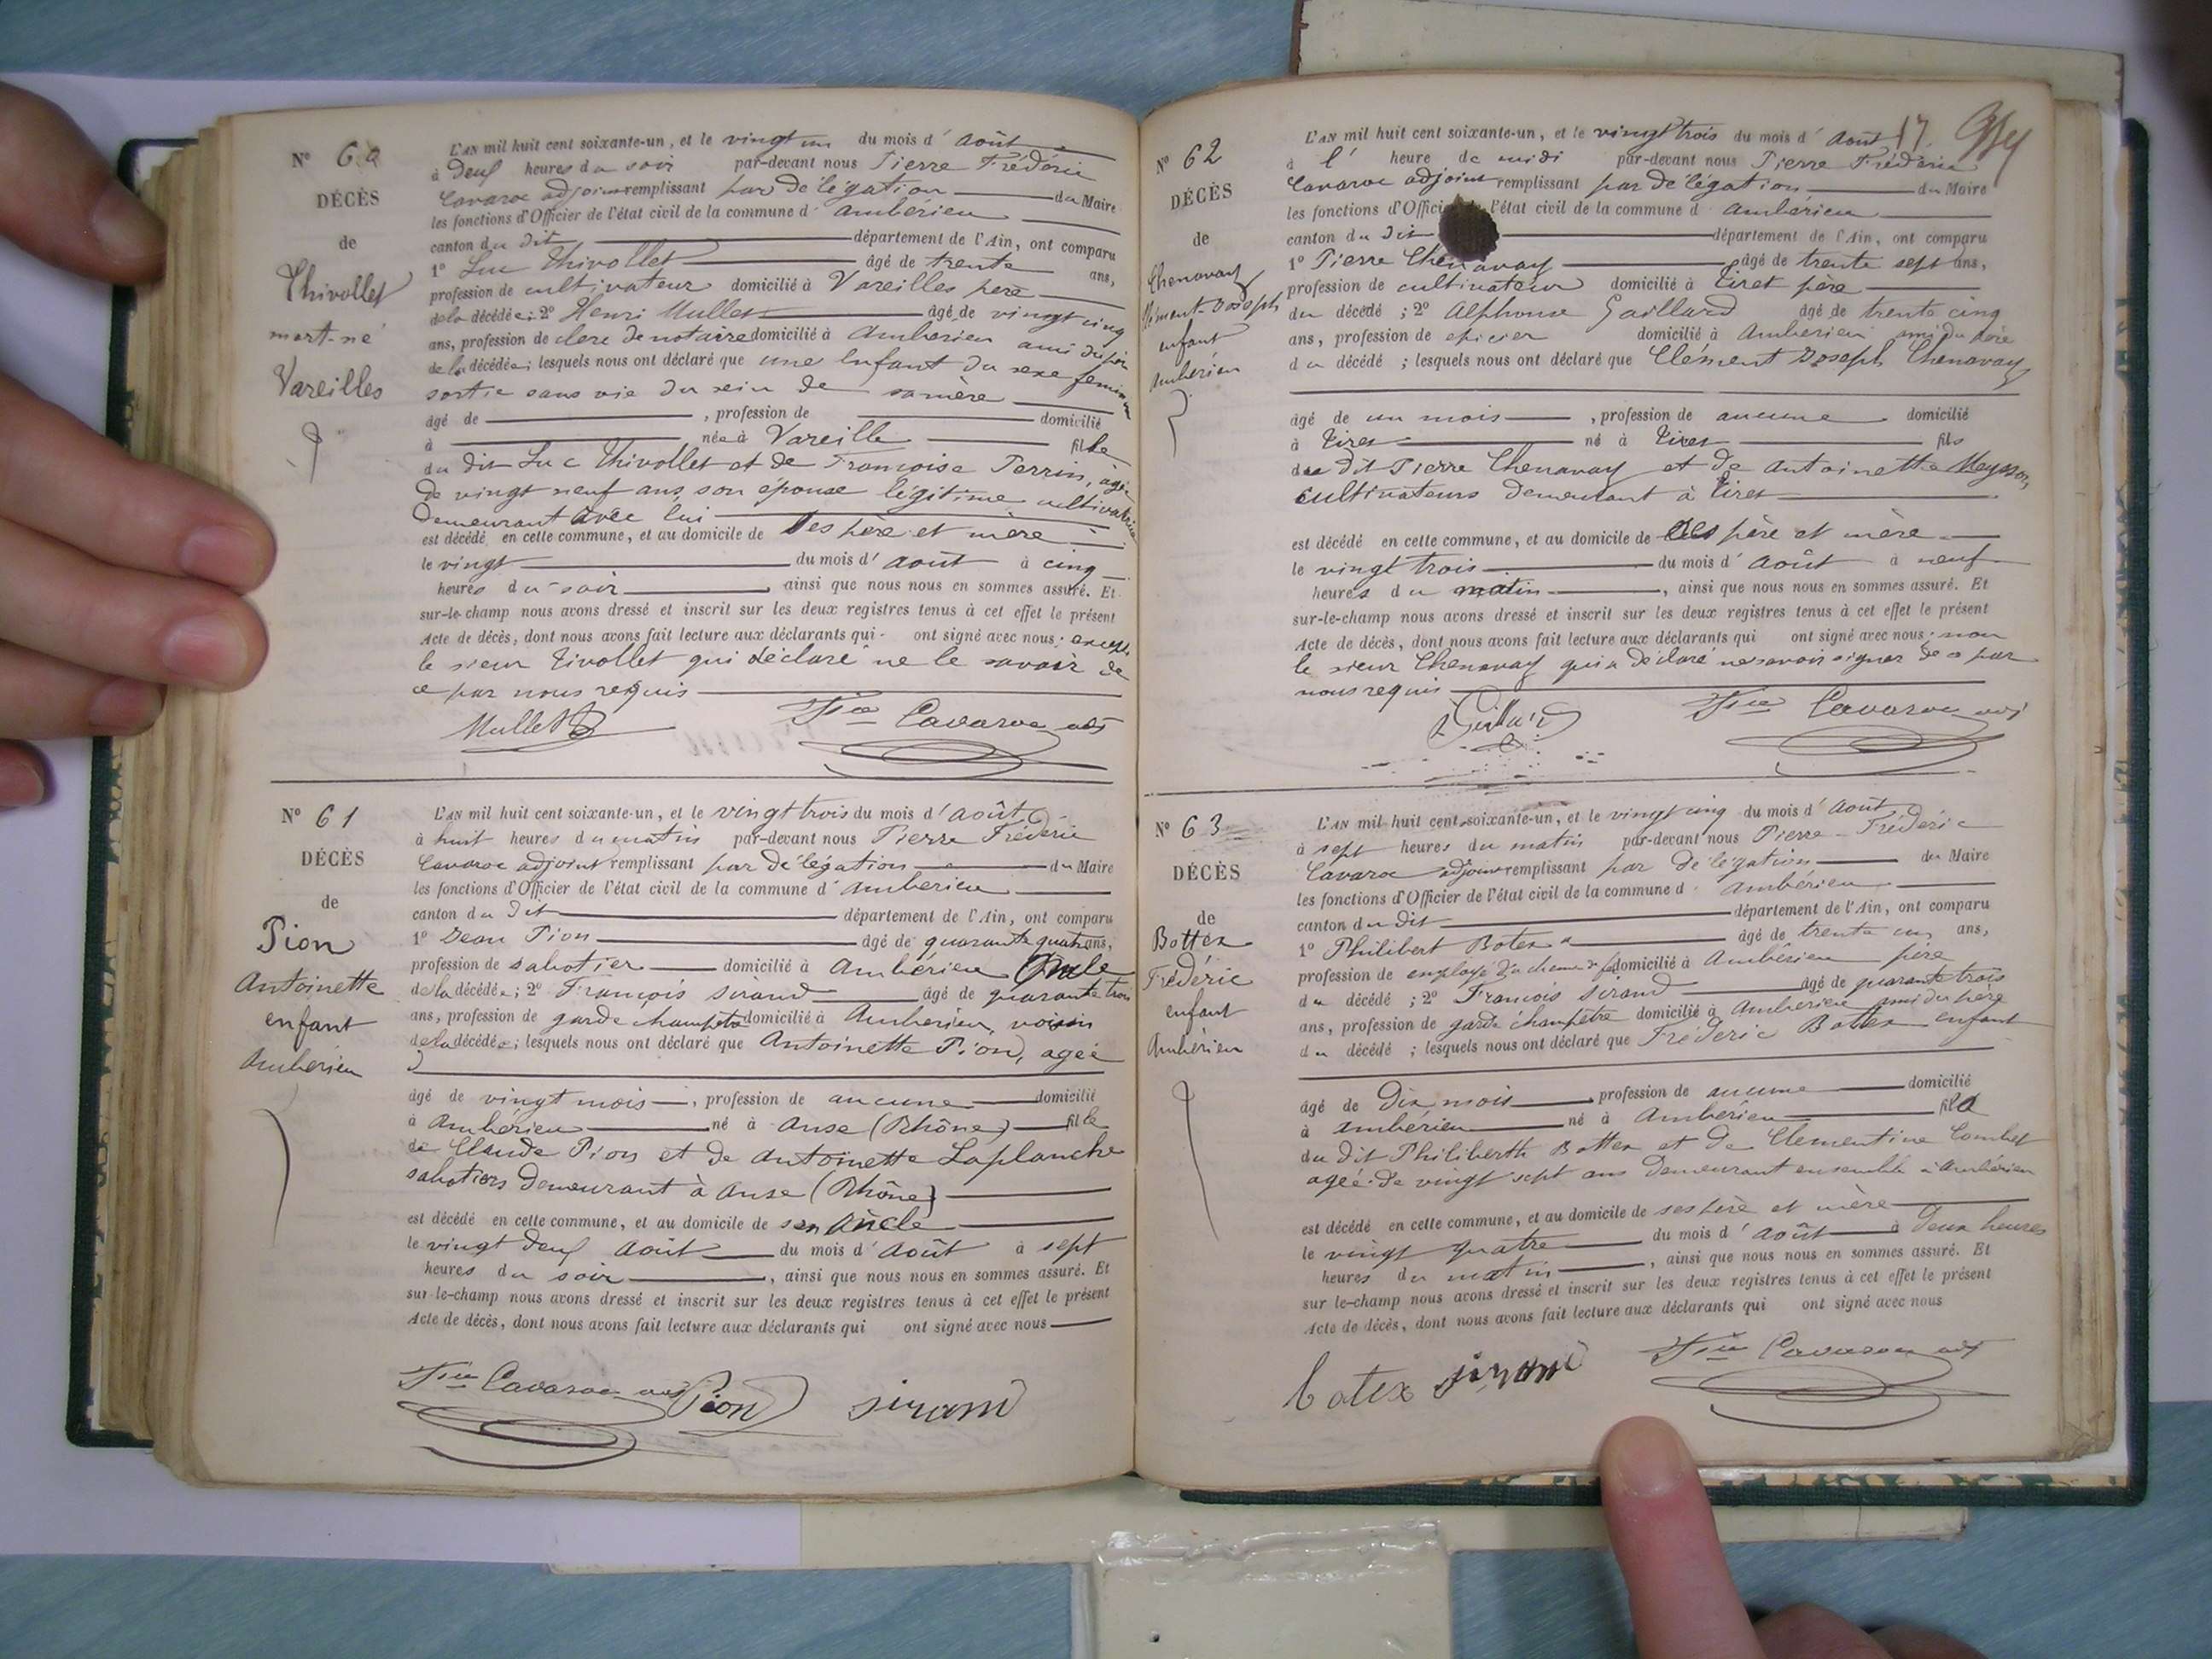 N° 60
DÉCÈS
de
Thivollet
mort-né
Vareilles
L'AN mil huit cent soixante-un, et le vingt un du mois d' Août
à deux heures du soir par-devant nous Pierre Frédéric
Cavaroc adjoint remplissant par délégation du Maire
les fonctions d'Officier de l'état civil de la commune d' Ambérieu
canton du dit département de l'Ain, ont comparu
1° Luc Thivollet âgé de trente ans,
profession de cultivateur domicilié à Vareilles père
de la décédée; 2° Henri Mullet âgé de vingt cinq
ans, profession de clerc de notaire domicilié à Ambérieu ami du père
de la décédée; lesquels nous ont déclaré que une enfant du sexe feminin
sortie sans vie du sein de sa mère
âgé de , profession de domicilié
à née à Vareille fille
du dit Luc Thivollet et de Françoise Perrin, agée
de vingt neuf ans, son épouse légitime cultivatrice
demeurant avec lui
est décédé en cette commune, et au domicile de ses père et mère
le vingt du mois d' août à cinq
heures du soir , ainsi que nous nous en sommes assuré. Et
sur-le-champ nous avons dressé et inscrit sur les deux registres tenus à cet effet le présent
Acte de décès, dont nous avons fait lecture aux déclarants qui ont signé avec nous; excepté
le sieur Tivollet qui déclaré ne le savoir de
ce par nous requis
Mullet
Fric Cavaroc adj
N° 61
DÉCÈS
de
Pion
Antoinette
enfant
Ambérieu
L'AN mil huit cent soixante-un, et le vingt trois du mois d' août
à huit heures du matin par-devant nous Pierre Frédéric
Cavaroc adjoint remplissant par délégation du Maire
les fonctions d'Officier de l'état civil de la commune d' Ambérieu
canton du dit département de l'Ain, ont comparu
1° Jean Pion âgé de quarante quatre ans,
profession de sabotier domicilié à Ambérieu Oncle
de la décédée; 2° François Sirand âgé de quarante trois
ans, profession de garde champêtre domicilié à Ambérieu, voisin
de la décédée; lesquels nous ont déclaré que Antoinette Pion, agée
âgé de vingt mois , profession de aucune domicilié
à Ambérieu né à Anse (Rhône) fille
de Claude Pion et de Antoinette Laplanche
sabotiers demeurant à Anse (Rhône)
est décédé en cette commune, et au domicile de son oncle
le vingt deux Août du mois d' Août à sept
heures du soir , ainsi que nous nous en sommes assuré. Et
sur-le-champ nous avons dressé et inscrit sur les deux registres tenus à cet effet le présent
Acte de décès, dont nous avons fait lecture aux déclarants qui ont signé avec nous
Fric Cavaroc adj Pion sirand
17
N° 62
DÉCÈS
de
Chenavay
Clément-Joseph
enfant
Ambérieu
L'AN mil huit cent soixante-un, et le vingt trois du mois d' Août
à l' heure de midi par-devant nous Pierre Frédéric
Cavaroc adjoint remplissant par délégation du Maire
les fonctions d'Officier de l'état civil de la commune d Ambérieu
canton du dit département de l'Ain, ont comparu
1° Pierre Chenavay âgé de trente sept ans,
profession de cultivateur domicilié à Tiret père
du décédé ; 2° Alphonse Gaillard âgé de trente cinq
ans, profession de epicier domicilié à Ambérieu ami du père
du décédé ; lesquels nous ont déclaré que Clément Joseph Chenavay
âgé de un mois , profession de aucune domicilié
à Tiret né à Tiret fils
du dit Pierre Chenavay et de Antoinette Meysson,
cultivateurs demeurant à Tiret
est décédé en cette commune, et au domicile de ses père et mère
le vingt trois du mois d' Août à neuf
heures du matin , ainsi que nous nous en sommes assuré. Et
sur-le-champ nous avons dressé et inscrit sur les deux registres tenus à cet effet le présent
Acte de décès, dont nous avons fait lecture aux déclarants qui ont signé avec nous; non
le sieur Chenavay qui a déclaré ne savoir signer de ce par
nous requis
Fric Cavaroc adj
N° 63
DÉCÈS
de
Bottex
Frédéric
enfant
Ambérieu
L'AN mil huit cent soixante-un, et le vingt cinq du mois d' Août
à sept heures du matin par-devant nous Pierre-Frédéric
Cavaroc adjoint remplissant par délégation du Maire
les fonctions d'Officier de l'état civil de la commune d' Ambérieu
canton du dit département de l'Ain, ont comparu
1° Philibert Botex âgé de trente un ans,
profession de employé du chemin de fer domicilié à Ambérieu père
du décédé ; 2° François Sirand âgé de quarante trois
ans, profession de garde champêtre domicilié à Ambérieu ami du père
du décédé ; lesquels nous ont déclaré que Fréderic Bottex enfant
âgé de dix mois profession de aucune domicilié
à Ambérieu né à Ambérieu fils
du dit Philiberth Bottex et de Clementine Combet
agée de vingt sept ans demeurant ensemble à Ambérieu
est décédé en cette commune, et au domicile de ses père et mère
le vingt quatre du mois d' Août à deux heures
heures du matin , ainsi que nous nous en sommes assuré. Et
sur le-champ nous avons dressé et inscrit sur les deux registres tenus à cet effet le présent
Acte de décès, dont nous avons fait lecture aux déclarants qui ont signé avec nous
botex sirand Fric Cavaroc adj